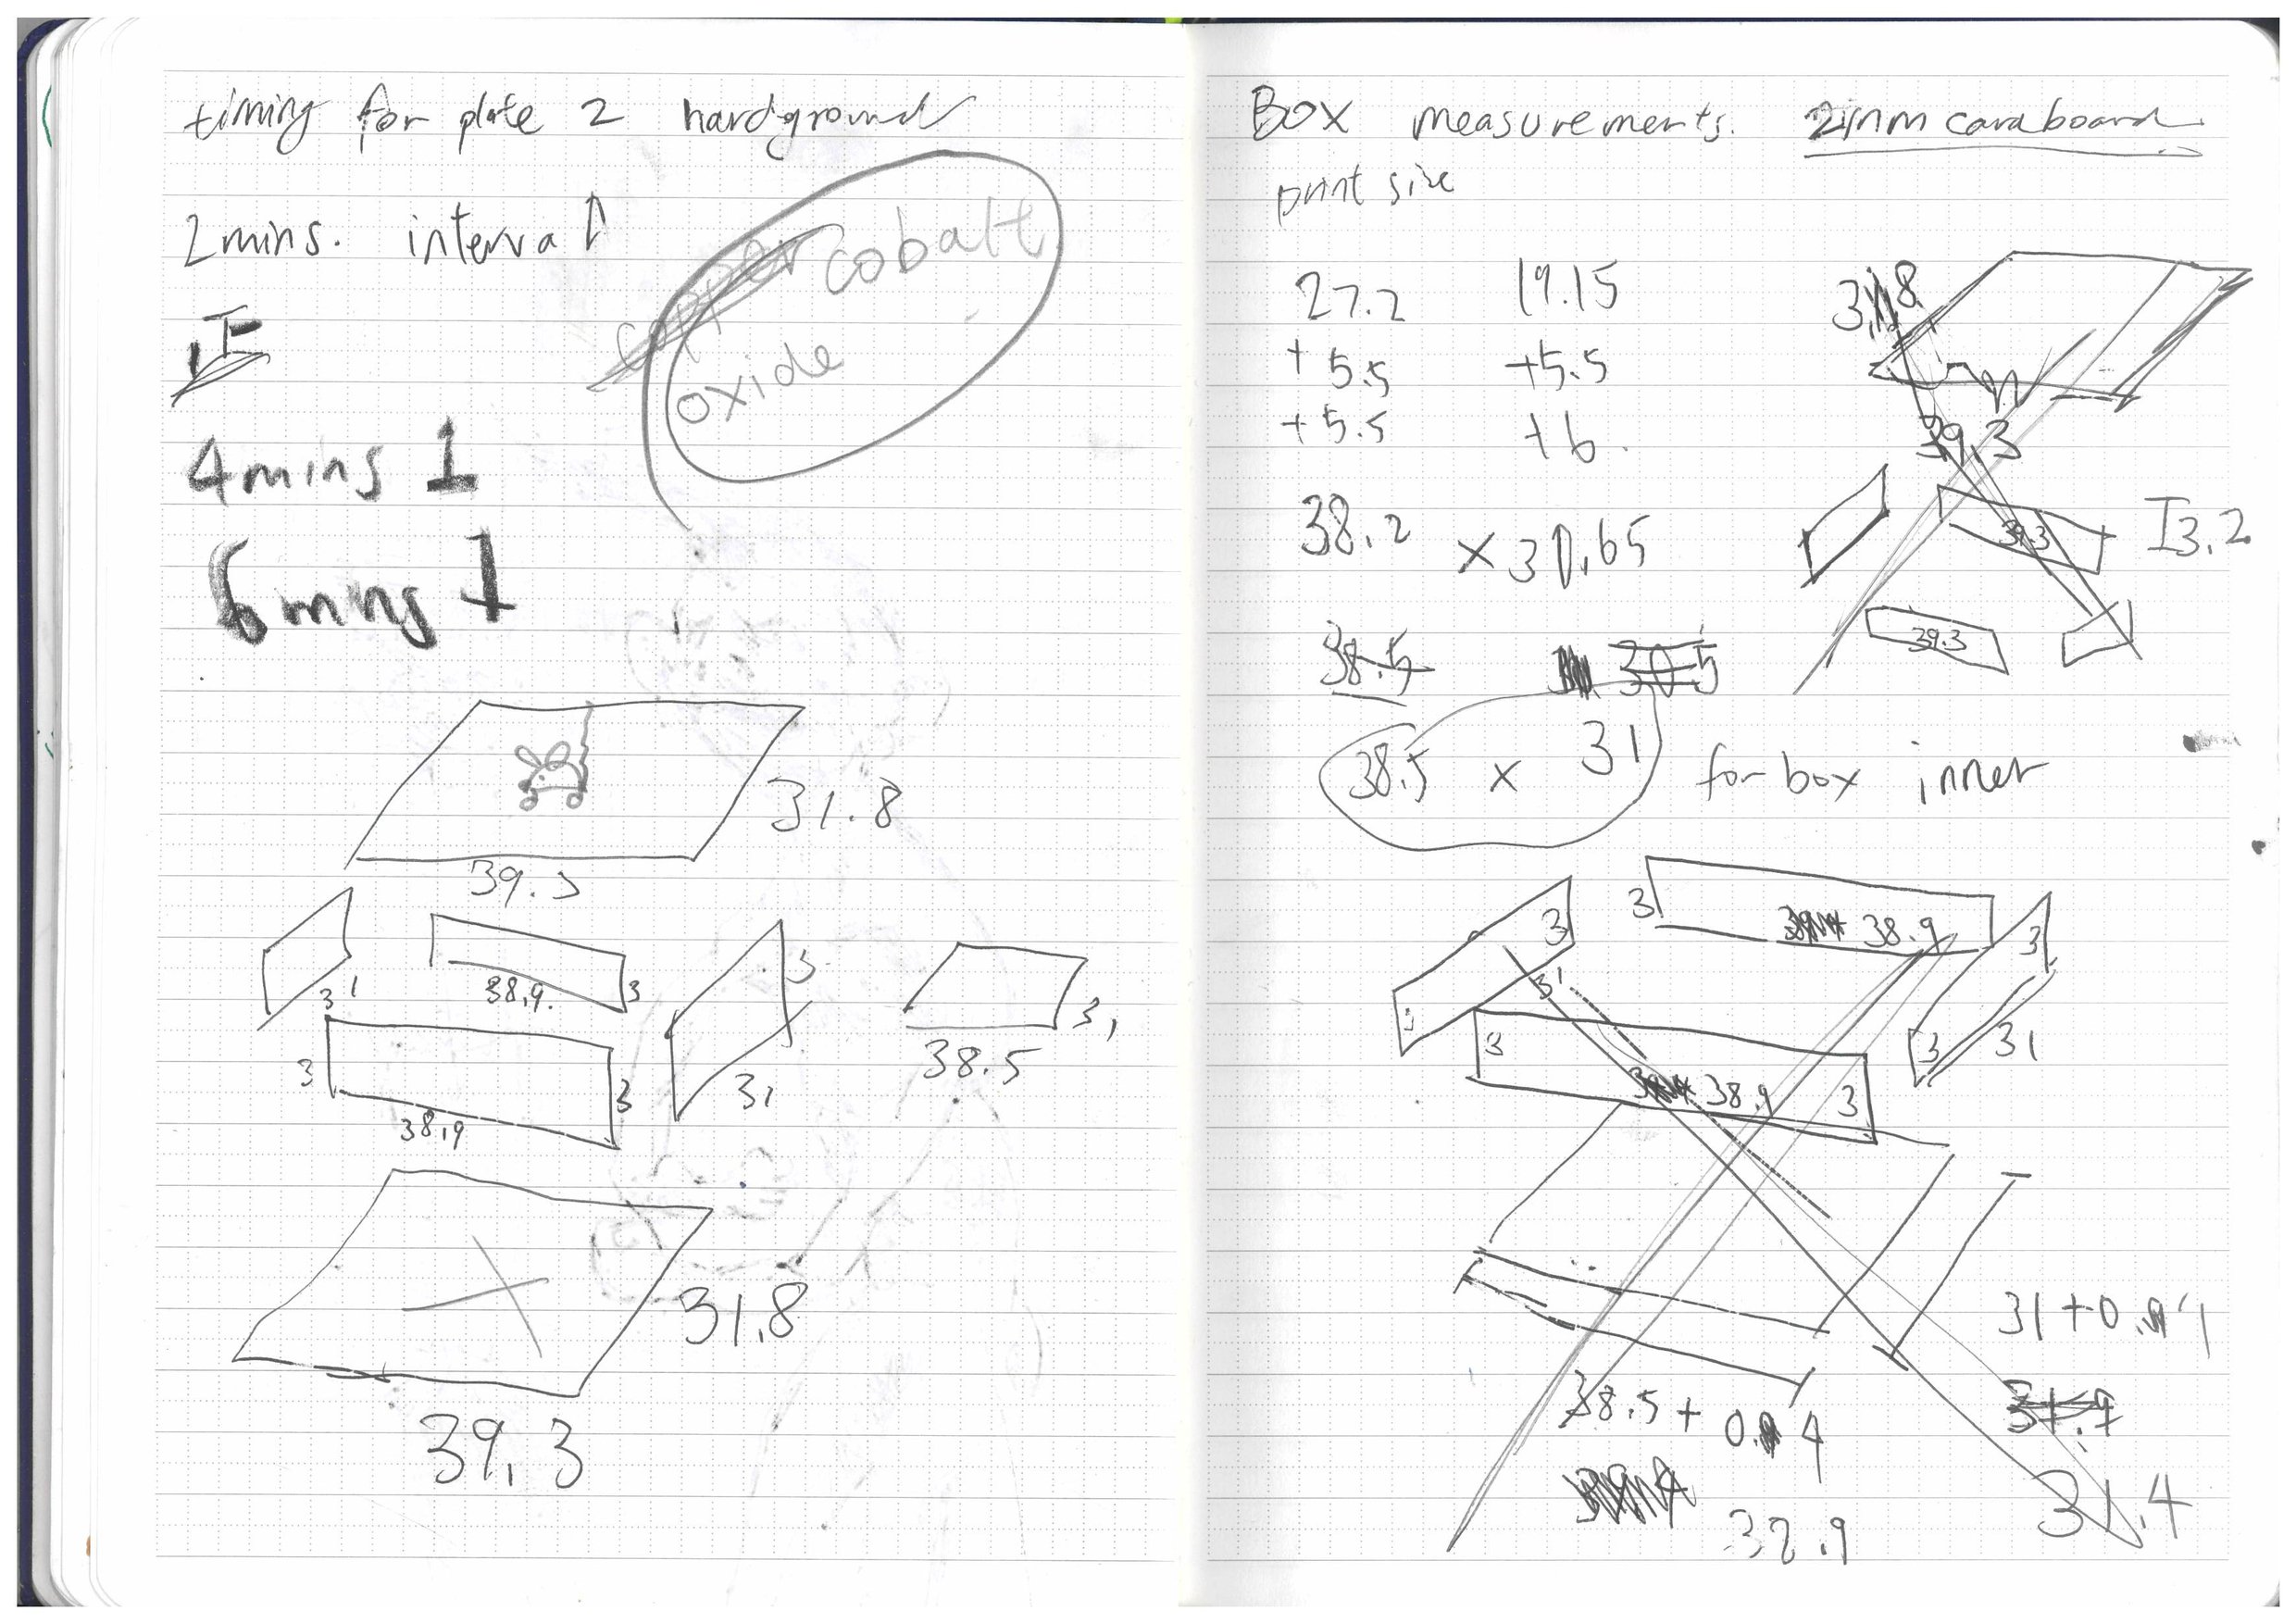 timing for plate 2 hardground
2mins. interval
copper cobalt
oxide
4mins 1
6mins 1
31.8
39.3
31
38.9.
3
3
3
38.9
3
31
31
38.5
31.8
39.3
Box measurements. 2mm cardboard
print size
27.2 19.15
+5.5 +5.5
+5.5 +6.
38.2 × 30.65
38.5 30.5
38.5 × 31 for box inner
31.8
39.3
39.3
I3.2
39.3
3
3
31
3
38.9
3
3
31
3
38.9
3
31+0.4
38.5+0.4
31.4
38.9